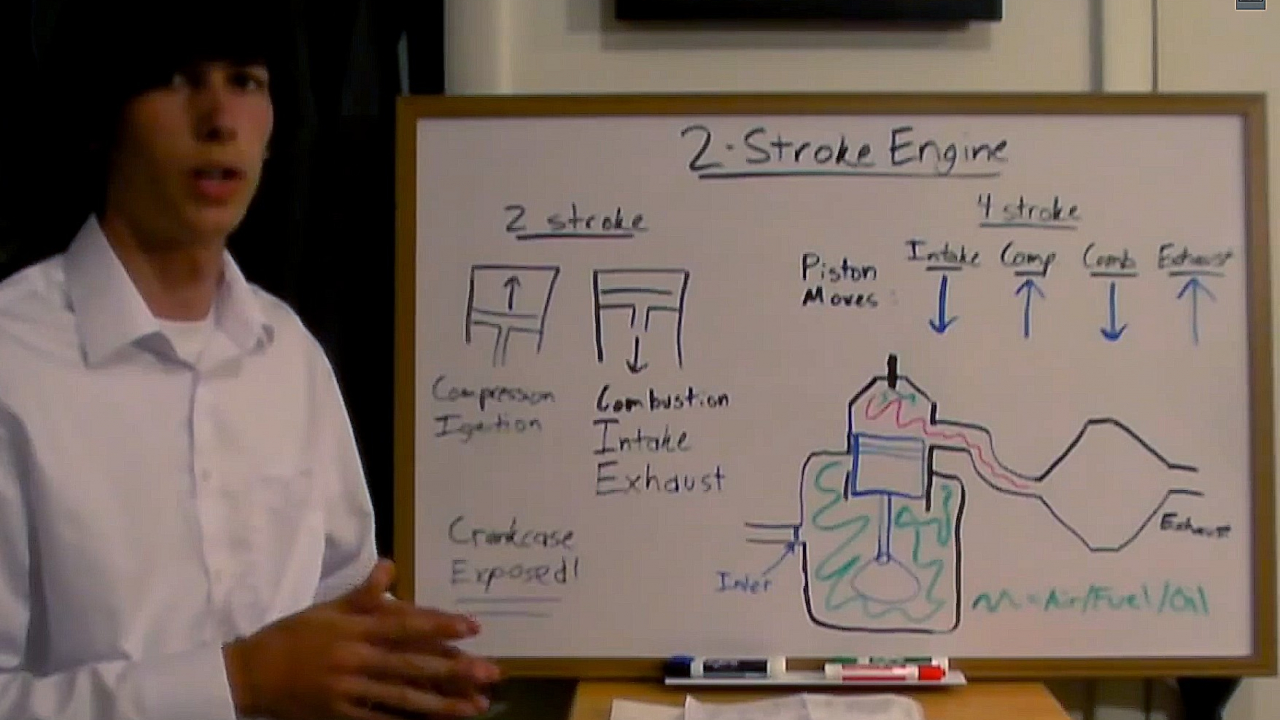 2-Stroke Engine
2 stroke
Compression
Ignition
Combustion
Intake
Exhaust
Crankcase
Exposed!
4 stroke
Piston
Moves:
Intake Comp Comb Exhaust
Inlet
Exhaust
= Air/Fuel/Oil